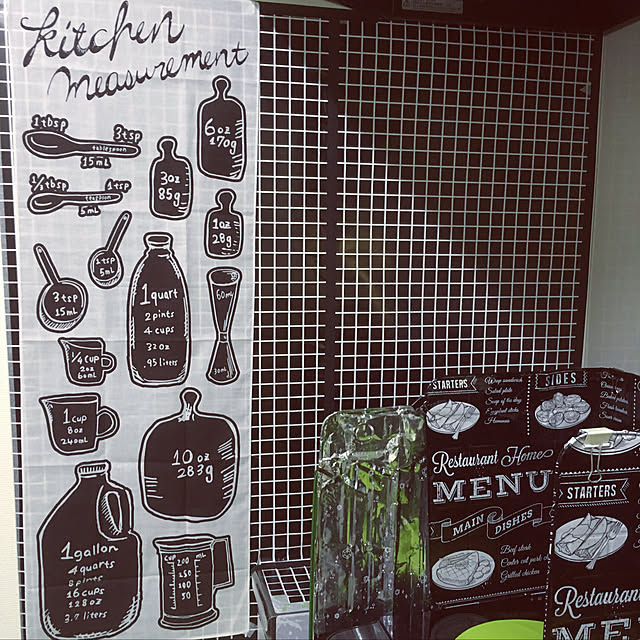 kitchen
measurement
1tbsp
3tsp
tablespoon
15mL
6oz
170g
3oz
85g
1/2tbsp
1tsp
teaspoon
5mL
1oz
28g
1tsp
5mL
3tsp
15mL
1quart
2pints
4 cups
32oz
.95liters
60mL
30mL
1/4 cup
2oz
60mL
1cup
8oz
240mL
10oz
283g
1gallon
4quarts
8pints
16cups
128oz
3.7 liters
cup
mL
200
150
100
50
STARTERS
Soup of the day
Hummus
SIDES
Restaurant Home
MENU
MAIN
DISHES
Beef steak
Grilled chicken
STARTERS
Restaura
ME